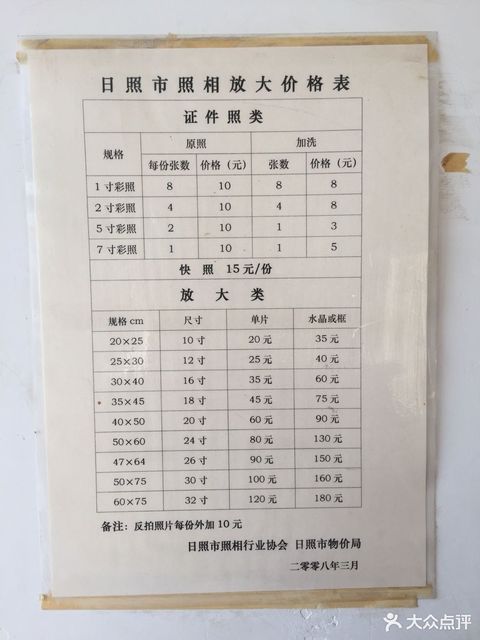 日照市照相放大价格表
证件照类
规格 原照 加洗
每份张数 价格（元） 张数 价格（元）
1寸彩照 8 10 8 8
2寸彩照 4 10 4 8
5寸彩照 2 10 1 3
7寸彩照 1 10 1 5
快照 15元/份
放大类
规格cm 尺寸 单片 水晶或框
20×25 10寸 20元 35元
25×30 12寸 25元 40元
30×40 16寸 35元 60元
35×45 18寸 45元 75元
40×50 20寸 60元 90元
50×60 24寸 80元 130元
47×64 26寸 90元 150元
50×75 30寸 100元 160元
60×75 32寸 120元 180元
备注：反拍照片每份外加10元
日照市照相行业协会 日照市物价局
二零零八年三月
大众点评